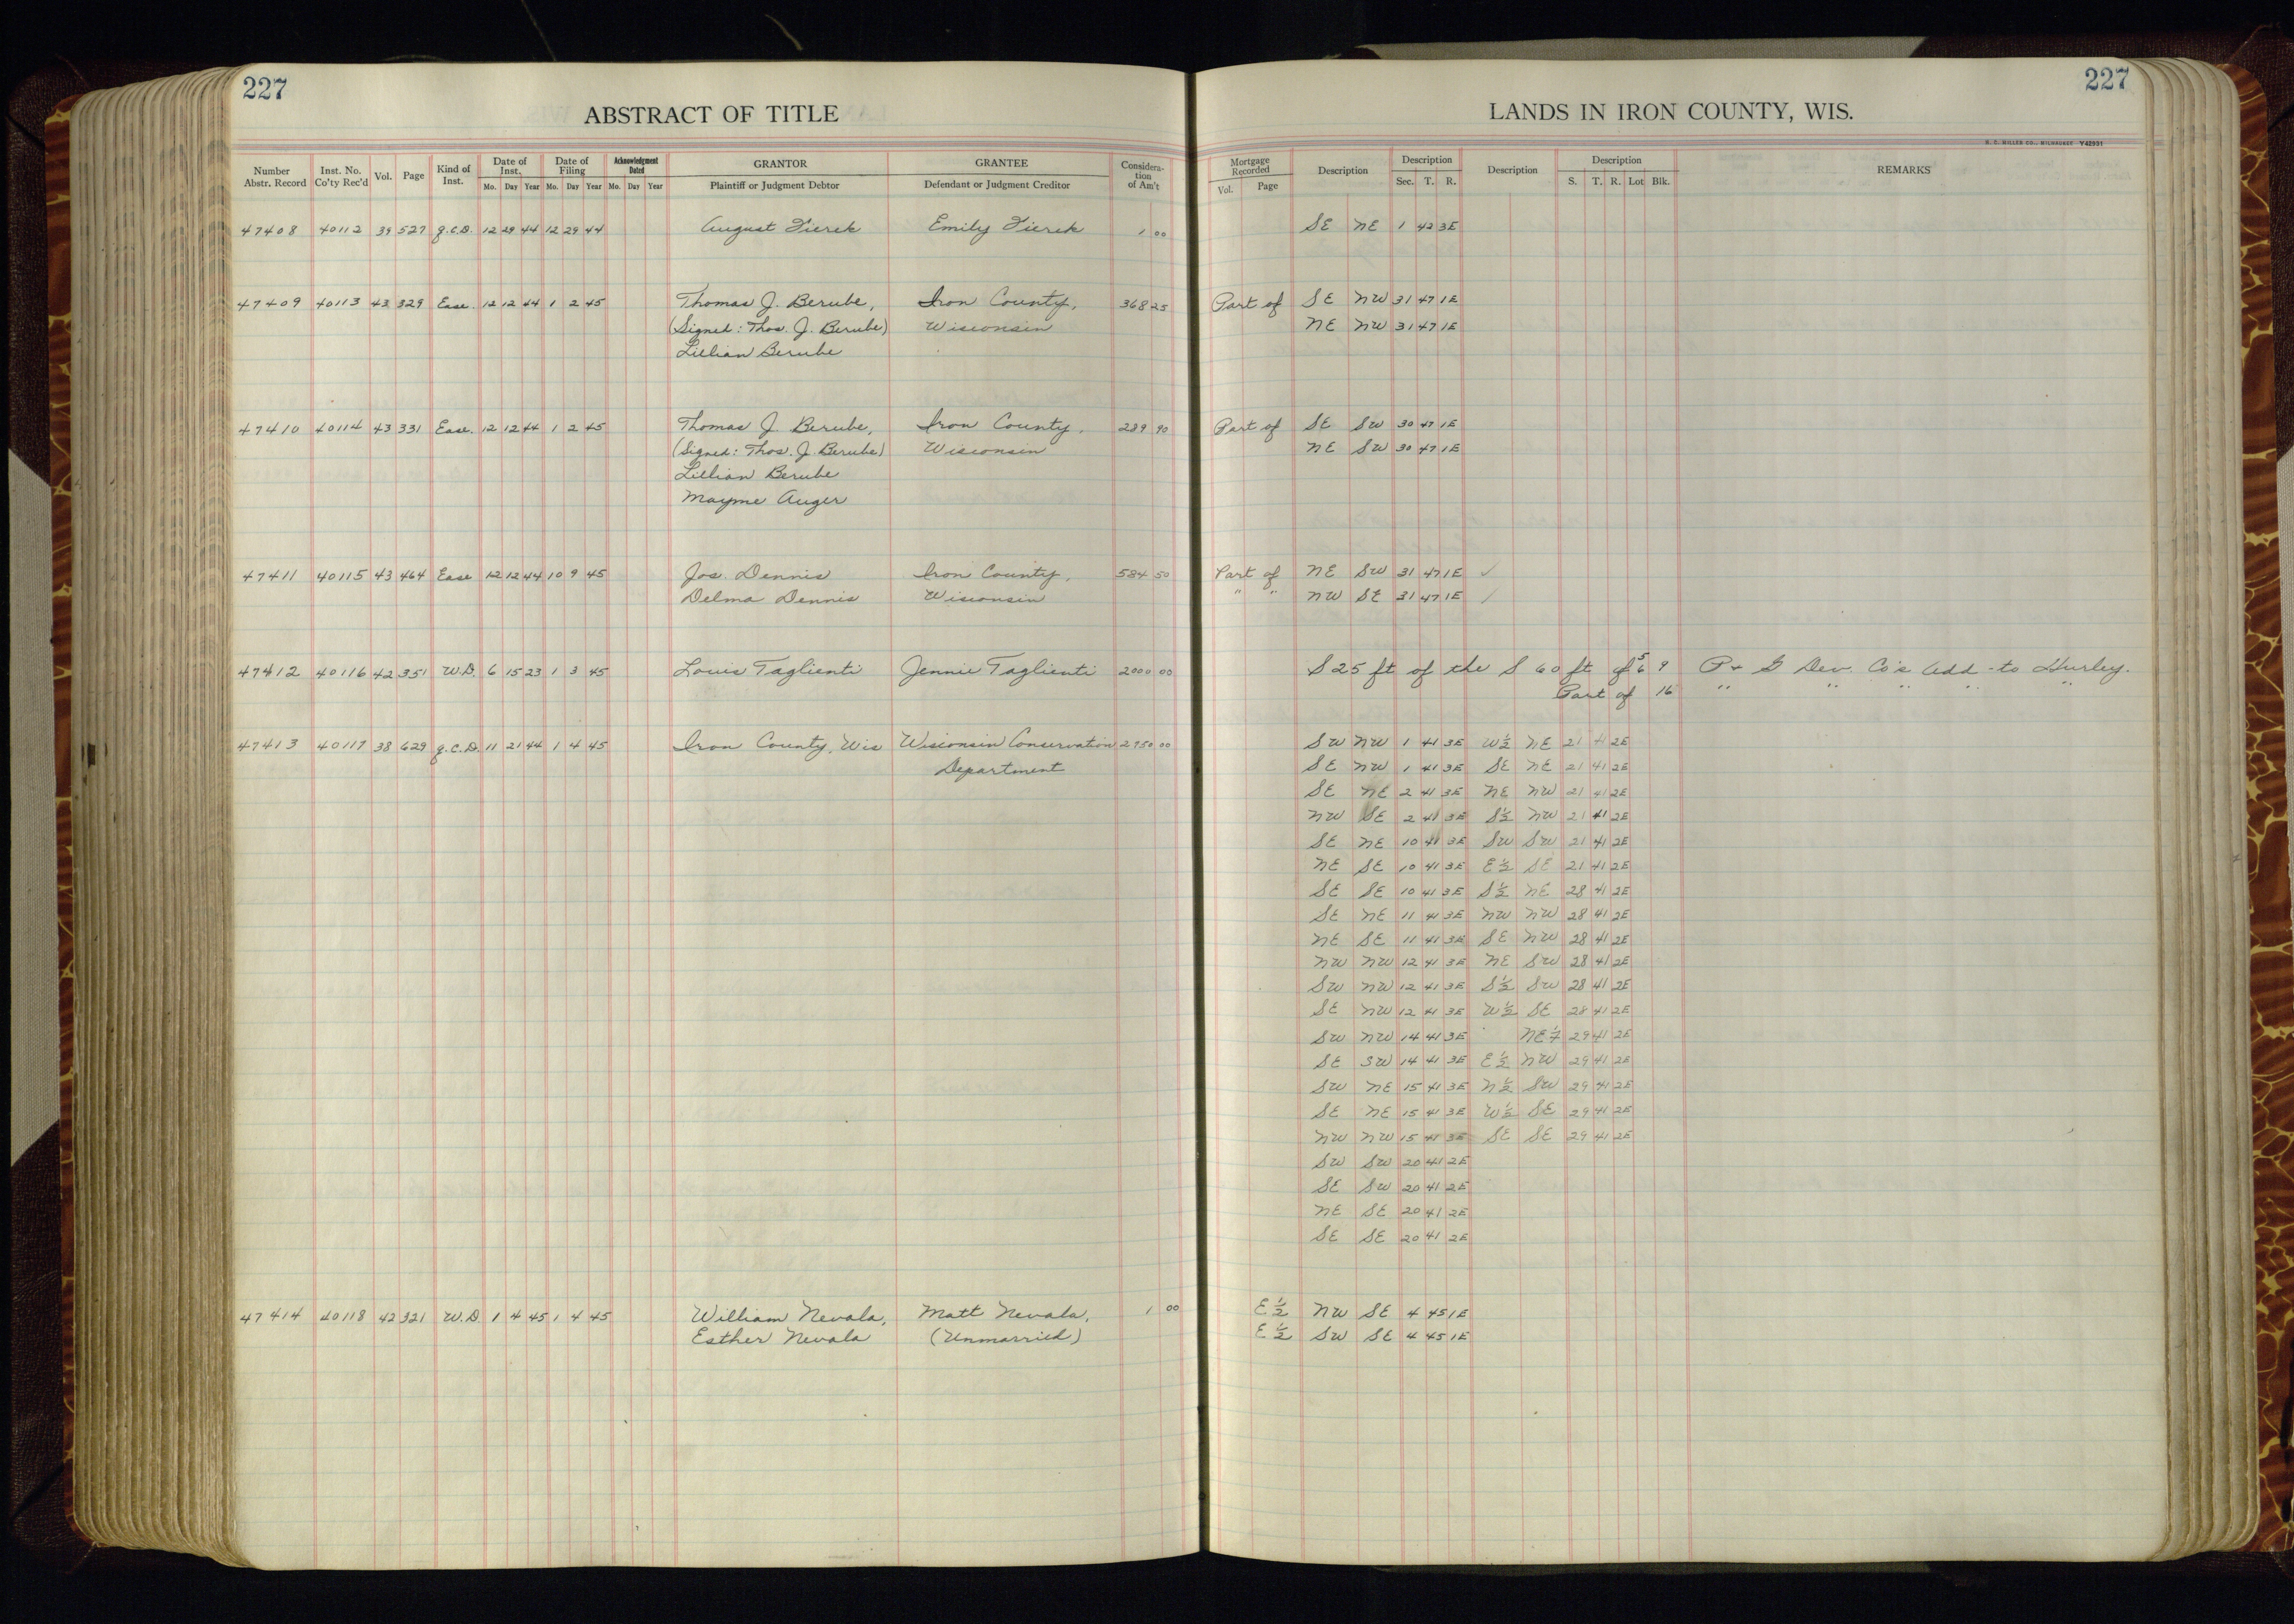 227
ABSTRACT OF TITLE
Number Abstr. Record | Inst. No. Co'ty Rec'd | Vol. | Page | Kind of Inst. | Date of Inst. Mo. Day Year | Date of Filing Mo. Day Year | Acknowledgment Dated Mo. Day Year | GRANTOR Plaintiff or Judgment Debtor | GRANTEE Defendant or Judgment Creditor | Consideration of Am't
47408 40112 39 527 Q.C.D. 12 29 44 12 29 44 August Fierek Emily Fierek 1 00
47409 40113 43 329 Ease. 12 12 44 1 2 45 Thomas J. Berube, Iron County, 368 25
(Signed: Thos. J. Berube) Wisconsin
Lillian Berube
47410 40114 43 331 Ease. 12 12 44 1 2 45 Thomas J. Berube, Iron County, 289 90
(Signed: Thos. J. Berube) Wisconsin
Lillian Berube
Mayme Auger
47411 40115 43 464 Ease 12 12 44 10 9 45 Jos. Dennis Iron County, 584 50
Delma Dennis Wisconsin
47412 40116 42 351 W.D. 6 15 23 1 3 45 Louis Taglienti Jennie Taglienti 2000 00
47413 40117 38 629 Q.C.D. 11 21 44 1 4 45 Iron County, Wis Wisconsin Conservation 2950 00
Department
47414 40118 42 321 W.D. 1 4 45 1 4 45 William Nevala, Matt Nevala, 1 00
Esther Nevala (Unmarried)
227
LANDS IN IRON COUNTY, WIS.
H. C. MILLER CO., MILWAUKEE Y42931
Mortgage Recorded Vol. Page | Description | Description Sec. T. R. | Description | Description S. T. R. Lot Blk. | REMARKS
SE NE 1 42 3E
Part of SE NW 31 47 1E
NE NW 31 47 1E
Part of SE SW 30 47 1E
NE SW 30 47 1E
Part of NE SW 31 47 1E ✓
" " NW SE 31 47 1E ✓
S 25 ft of the S 60 ft of 5 6 9 P & G Dev. Co's Add to Hurley.
Part of 16 " " " " "
SW NW 1 41 3E W½ NE 21 41 2E
SE NW 1 41 3E SE NE 21 41 2E
SE NE 2 41 3E NE NW 21 41 2E
NW SE 2 41 3E S½ NW 21 41 2E
SE NE 10 41 3E SW SW 21 41 2E
NE SE 10 41 3E E½ SE 21 41 2E
SE SE 10 41 3E S½ NE 28 41 2E
SE NE 11 41 3E NW NW 28 41 2E
NE SE 11 41 3E SE NW 28 41 2E
NW NW 12 41 3E NE SW 28 41 2E
SW NW 12 41 3E S½ SW 28 41 2E
SE NW 12 41 3E W½ SE 28 41 2E
SW NW 14 41 3E NE¼ 29 41 2E
SE SW 14 41 3E E½ NW 29 41 2E
SW NE 15 41 3E N½ SW 29 41 2E
SE NE 15 41 3E W½ SE 29 41 2E
NW NW 15 41 3E SE SE 29 41 2E
SW SW 20 41 2E
SE SW 20 41 2E
NE SE 20 41 2E
SE SE 20 41 2E
E½ NW SE 4 45 1E
E½ SW SE 4 45 1E